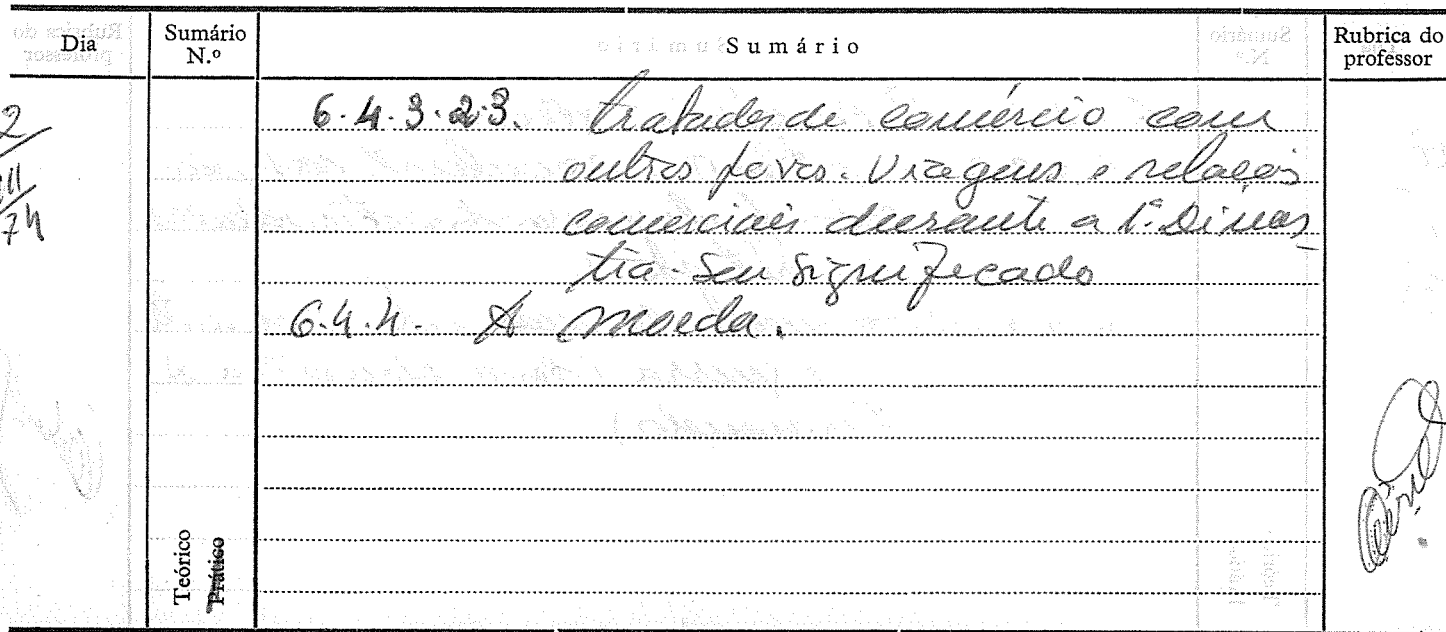 Dia
Sumário N.º
Sumário
Rubrica do professor
2/11/74
6.4.3.2.3. tratados de comércio com
outros povos. Viagens e relações
comerciais durante a 1ª Dinas_
tia - Seu significado
6.4.4. A moeda.
Teórico
Prático